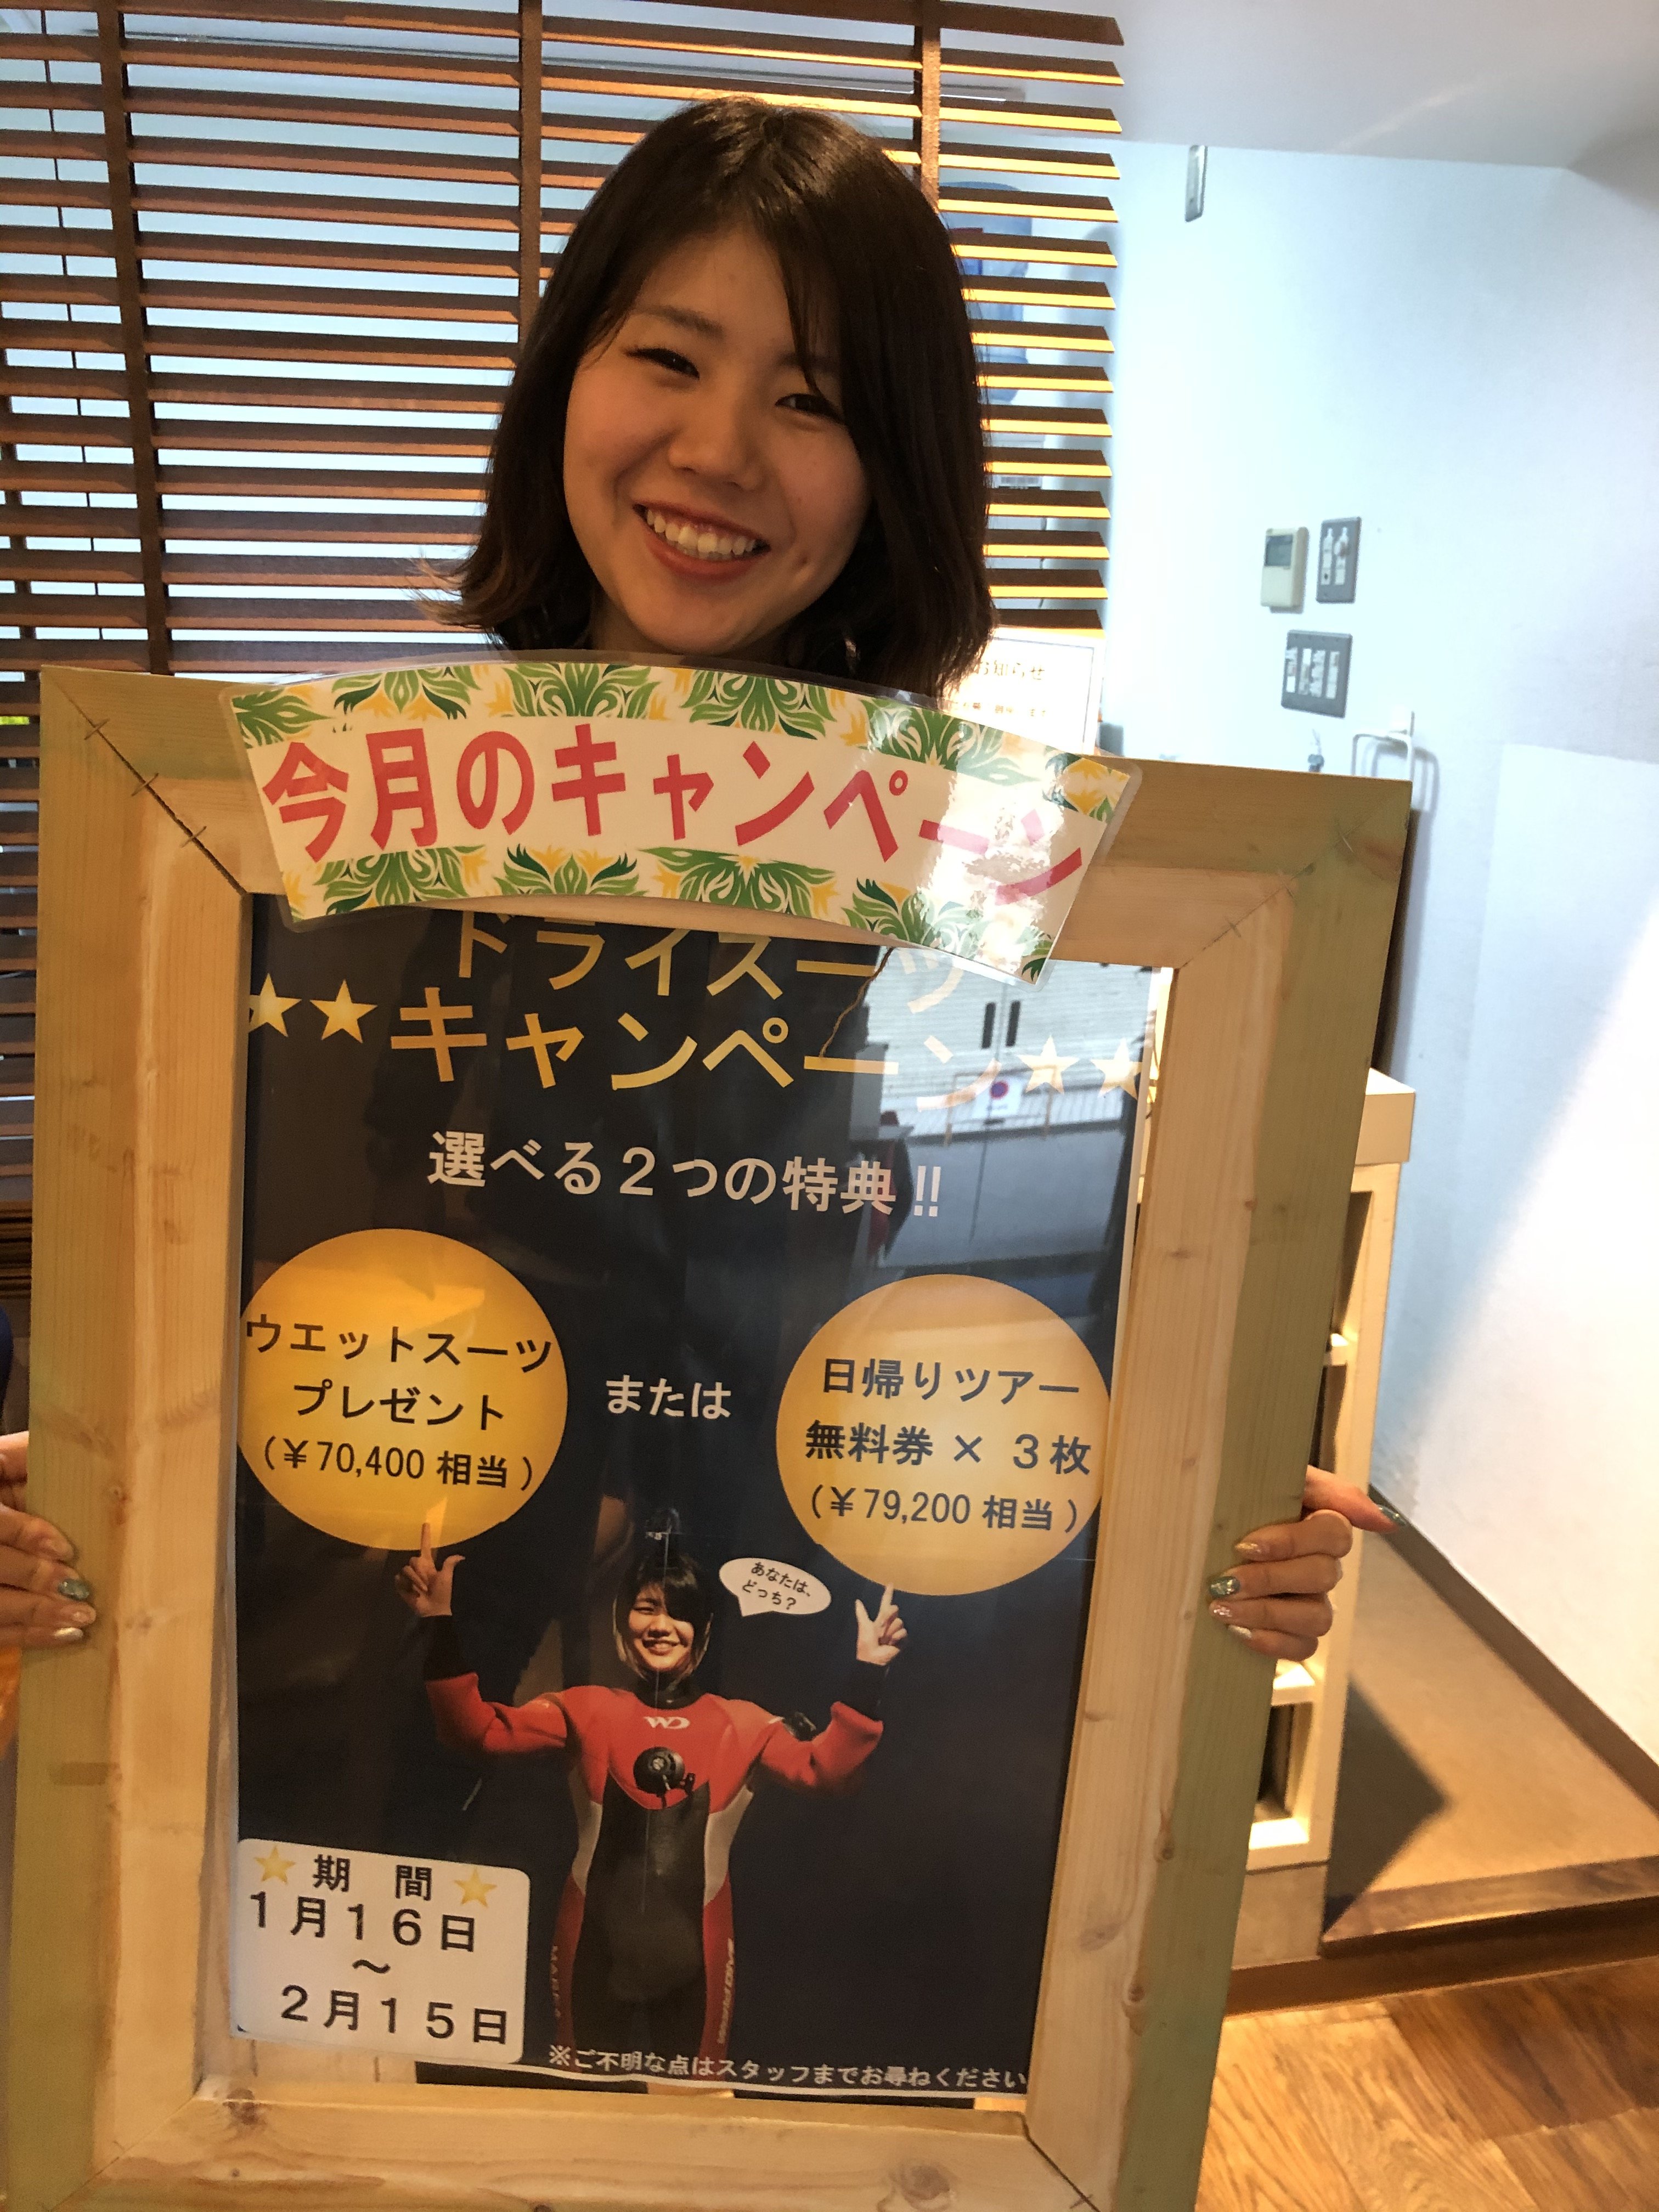 お知らせ
今月のキャンペーン
ドライスーツ
★★キャンペーン★★
選べる2つの特典!!
ウエットスーツ
プレゼント
(¥70,400 相当)
または
日帰りツアー
無料券 × 3枚
(¥79,200 相当)
あなたは、
どっち?
WD
★期 間★
1月16日
~
2月15日
※ご不明な点はスタッフまでお尋ねください